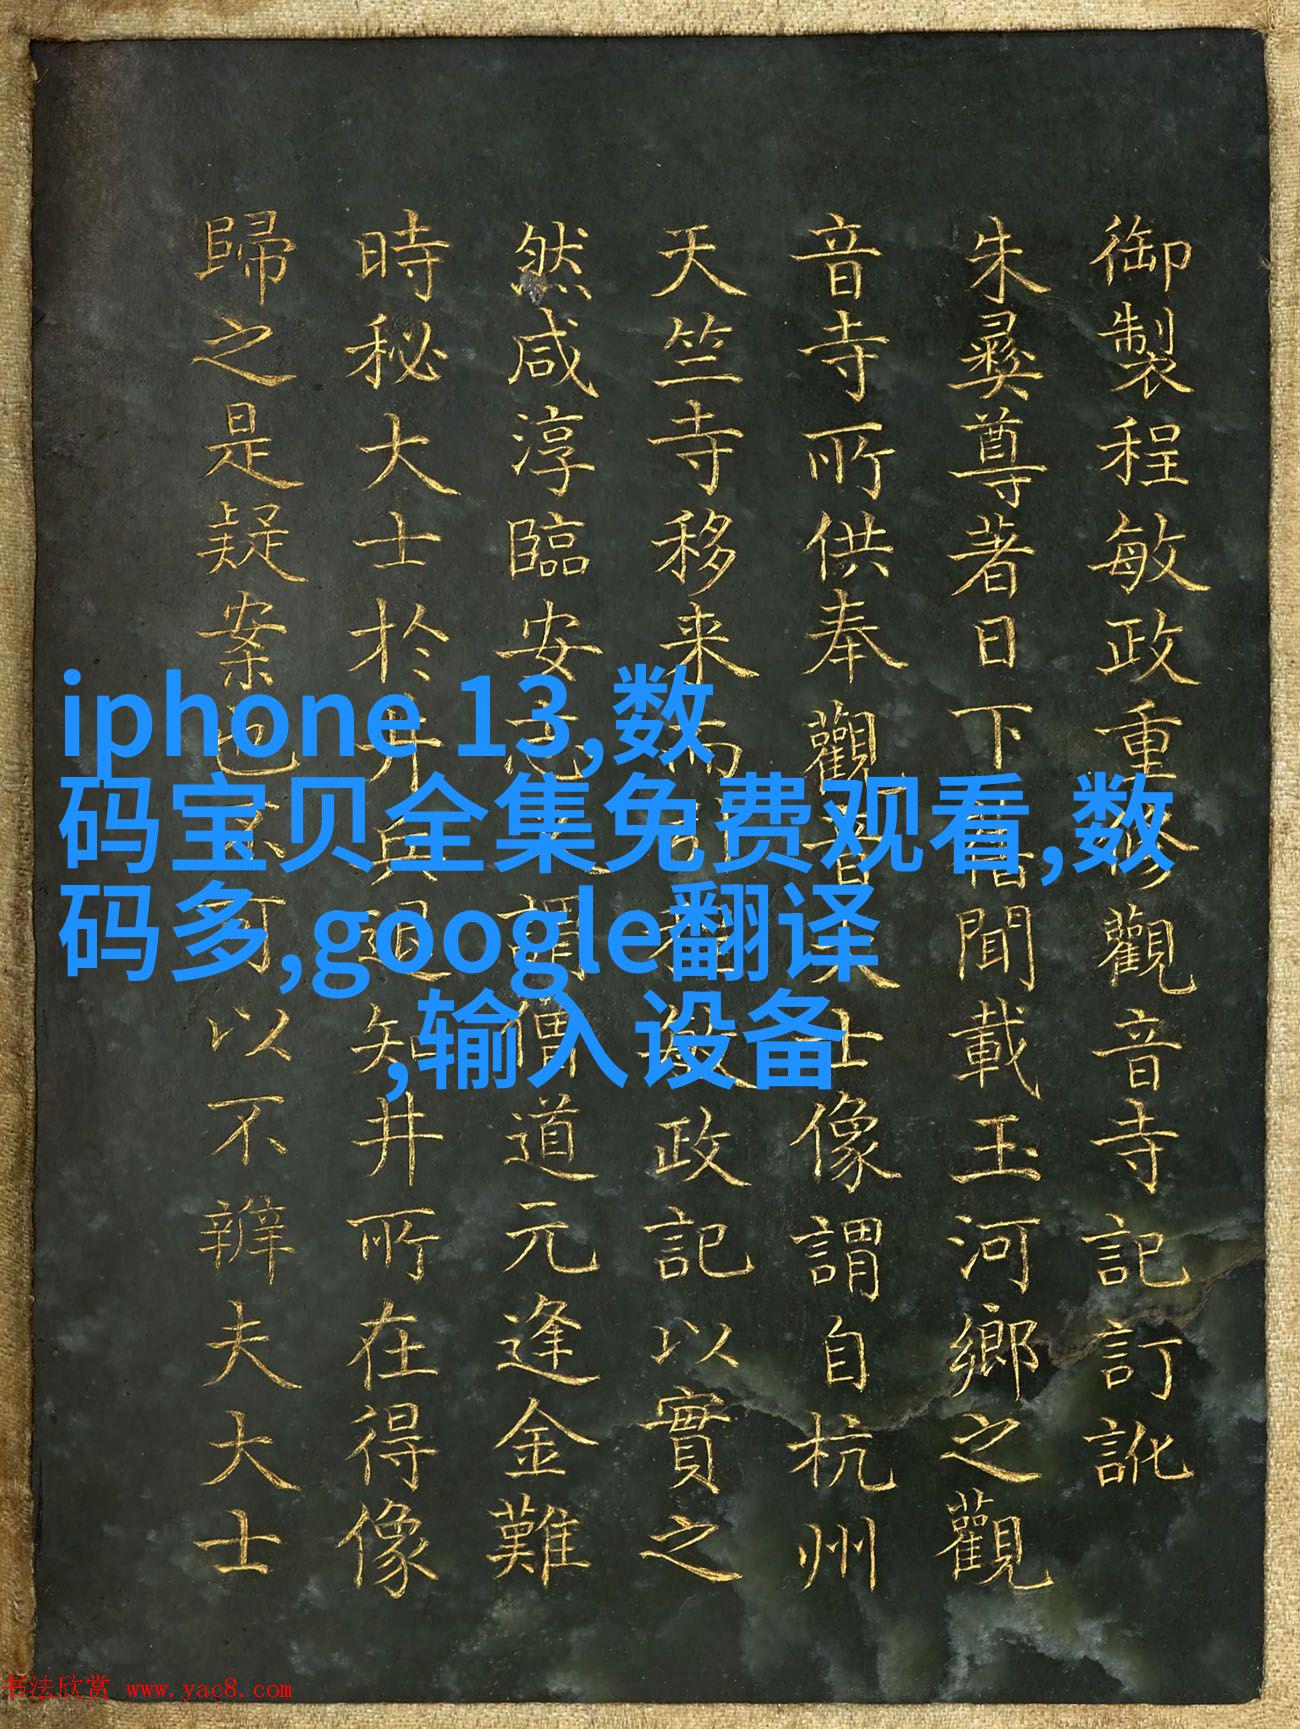 御製程敏政重修觀音寺記訂訛
朱彞尊著日下舊聞載玉河鄉之觀
音寺所供奉觀音大士像謂自杭州
天竺寺移来而引程敏政記以實之
然咸淳臨安志又謂僧道元逢金難
時秘大士於井兵退知井所在得像
歸之是疑案也不可以不辨夫大士
iphone 13,数
码宝贝全集免费观看,数
码多,google翻译
,输入设备
书法欣赏 www.yac8.com